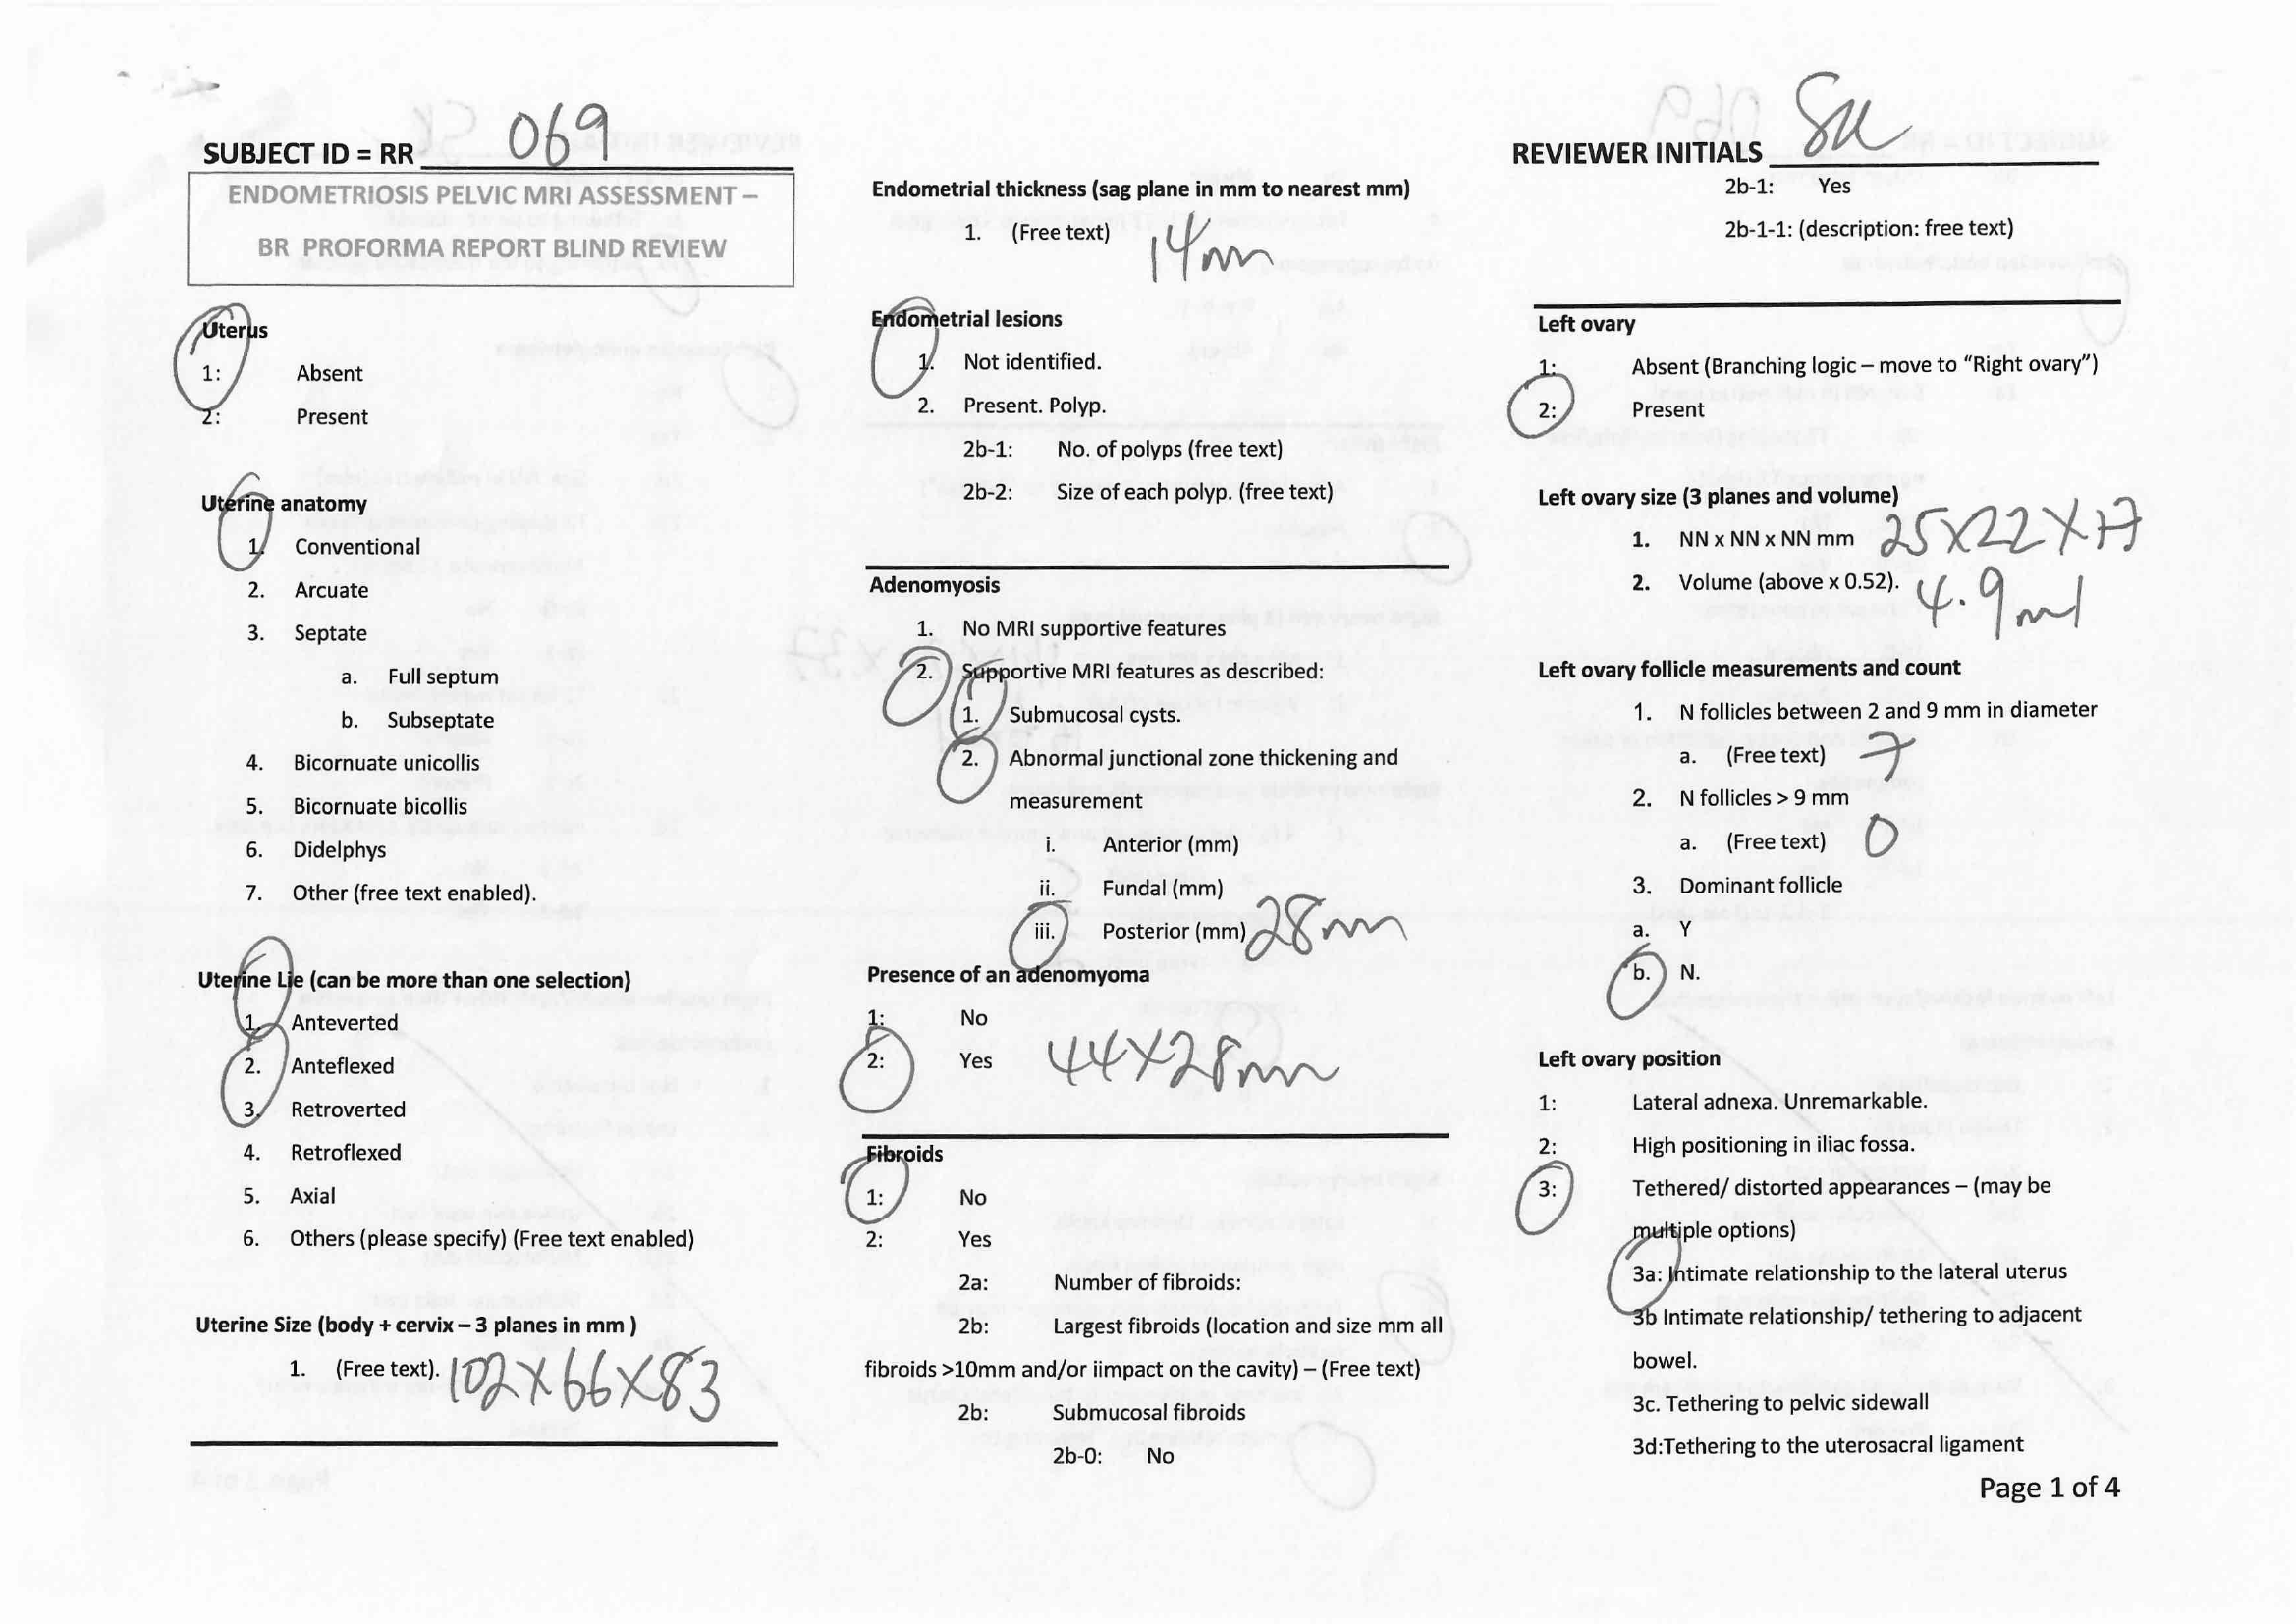 SUBJECT ID = RR 069
ENDOMETRIOSIS PELVIC MRI ASSESSMENT –
BR PROFORMA REPORT BLIND REVIEW
Uterus
1: Absent
2: Present
Uterine anatomy
1. Conventional
2. Arcuate
3. Septate
a. Full septum
b. Subseptate
4. Bicornuate unicollis
5. Bicornuate bicollis
6. Didelphys
7. Other (free text enabled).
Uterine Lie (can be more than one selection)
1. Anteverted
2. Anteflexed
3. Retroverted
4. Retroflexed
5. Axial
6. Others (please specify) (Free text enabled)
Uterine Size (body + cervix – 3 planes in mm )
1. (Free text). 102 X 66 X 83
Endometrial thickness (sag plane in mm to nearest mm)
1. (Free text) 14mm
Endometrial lesions
1. Not identified.
2. Present. Polyp.
2b-1: No. of polyps (free text)
2b-2: Size of each polyp. (free text)
Adenomyosis
1. No MRI supportive features
2. Supportive MRI features as described:
1. Submucosal cysts.
2. Abnormal junctional zone thickening and
measurement
i. Anterior (mm)
ii. Fundal (mm)
iii. Posterior (mm) 28mm
Presence of an adenomyoma
1: No
2: Yes 44X28mm
Fibroids
1: No
2: Yes
2a: Number of fibroids:
2b: Largest fibroids (location and size mm all
fibroids >10mm and/or iimpact on the cavity) – (Free text)
2b: Submucosal fibroids
2b-0: No
REVIEWER INITIALS
2b-1: Yes
2b-1-1: (description: free text)
Left ovary
1: Absent (Branching logic – move to “Right ovary”)
2: Present
Left ovary size (3 planes and volume)
1. NN x NN x NN mm 25X22X17
2. Volume (above x 0.52). 4.9ml
Left ovary follicle measurements and count
1. N follicles between 2 and 9 mm in diameter
a. (Free text) 7
2. N follicles > 9 mm
a. (Free text) 0
3. Dominant follicle
a. Y
b. N.
Left ovary position
1: Lateral adnexa. Unremarkable.
2: High positioning in iliac fossa.
3: Tethered/ distorted appearances – (may be
multiple options)
3a: Intimate relationship to the lateral uterus
3b Intimate relationship/ tethering to adjacent
bowel.
3c. Tethering to pelvic sidewall
3d:Tethering to the uterosacral ligament
Page 1 of 4